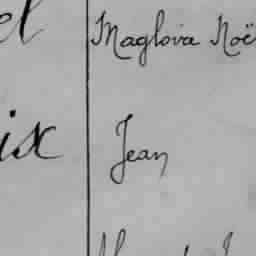 el Maglova Noë
ix Jean